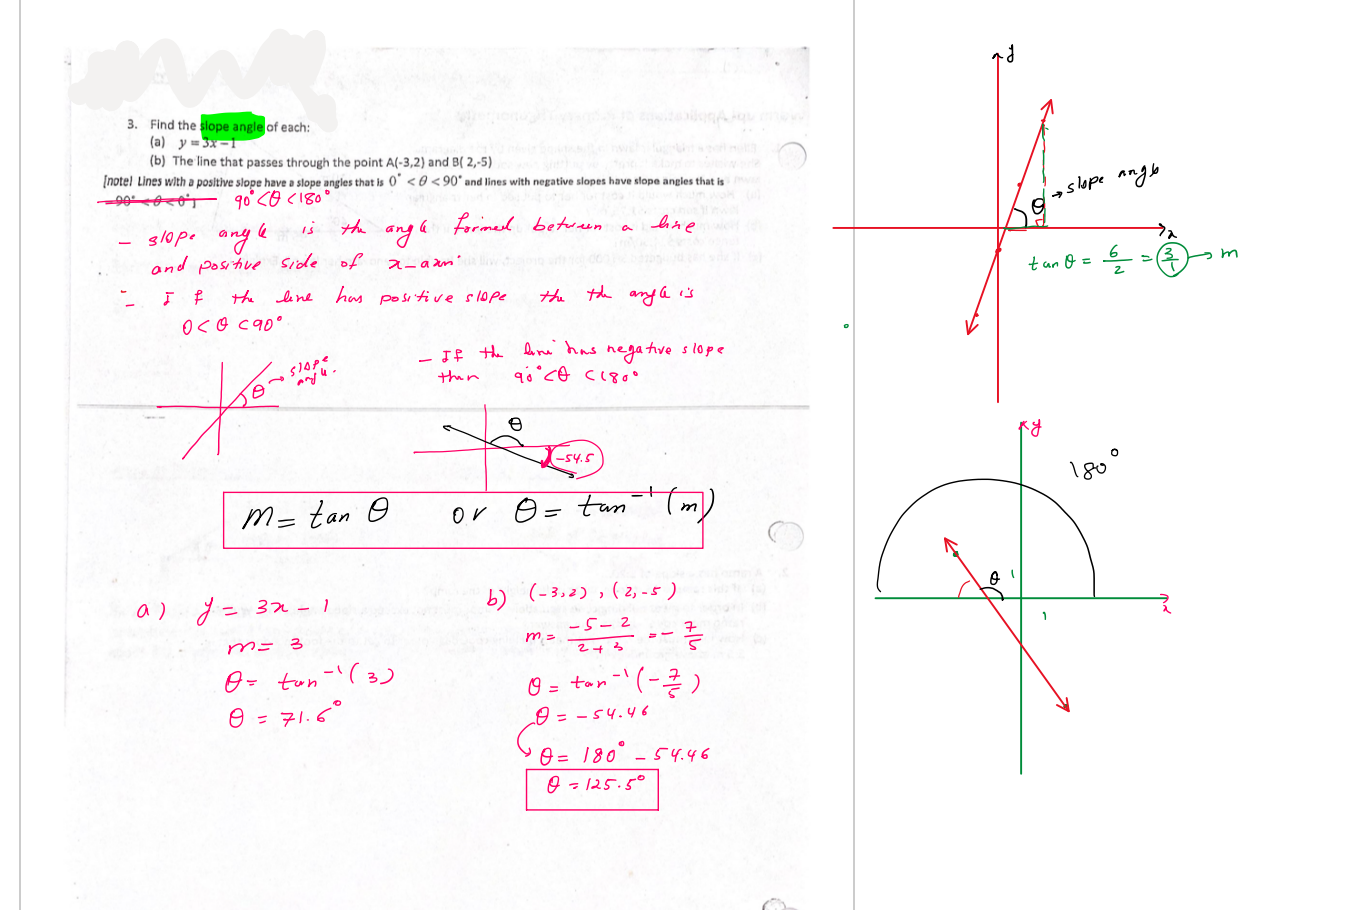 3. Find the slope angle of each:
(a) y = 3x – 1
(b) The line that passes through the point A(-3,2) and B( 2,-5)
[note] Lines with a positive slope have a slope angles that is 0° < θ < 90° and lines with negative slopes have slope angles that is
-90° < θ < 0° ] 90° < θ < 180°
- slope angle is the angle formed between a line
and positive side of x-axis
- If the line has positive slope the the angle is
0 < θ < 90°
- If the line has negative slope
then 90° < θ < 180°
θ → slope angle.
θ
-54.5
m = tan θ or θ = tan⁻¹(m)
a) y = 3x - 1
m = 3
θ = tan⁻¹(3)
θ = 71.6°
b) (-3,2), (2,-5)
m = \frac{-5-2}{2+3} = -\frac{7}{5}
θ = tan⁻¹(-\frac{7}{5})
θ = -54.46
θ = 180° - 54.46
θ = 125.5°
y
θ → slope angle
x
tan θ = \frac{6}{2} = \frac{3}{1} → m
y
180°
θ
1
1
x